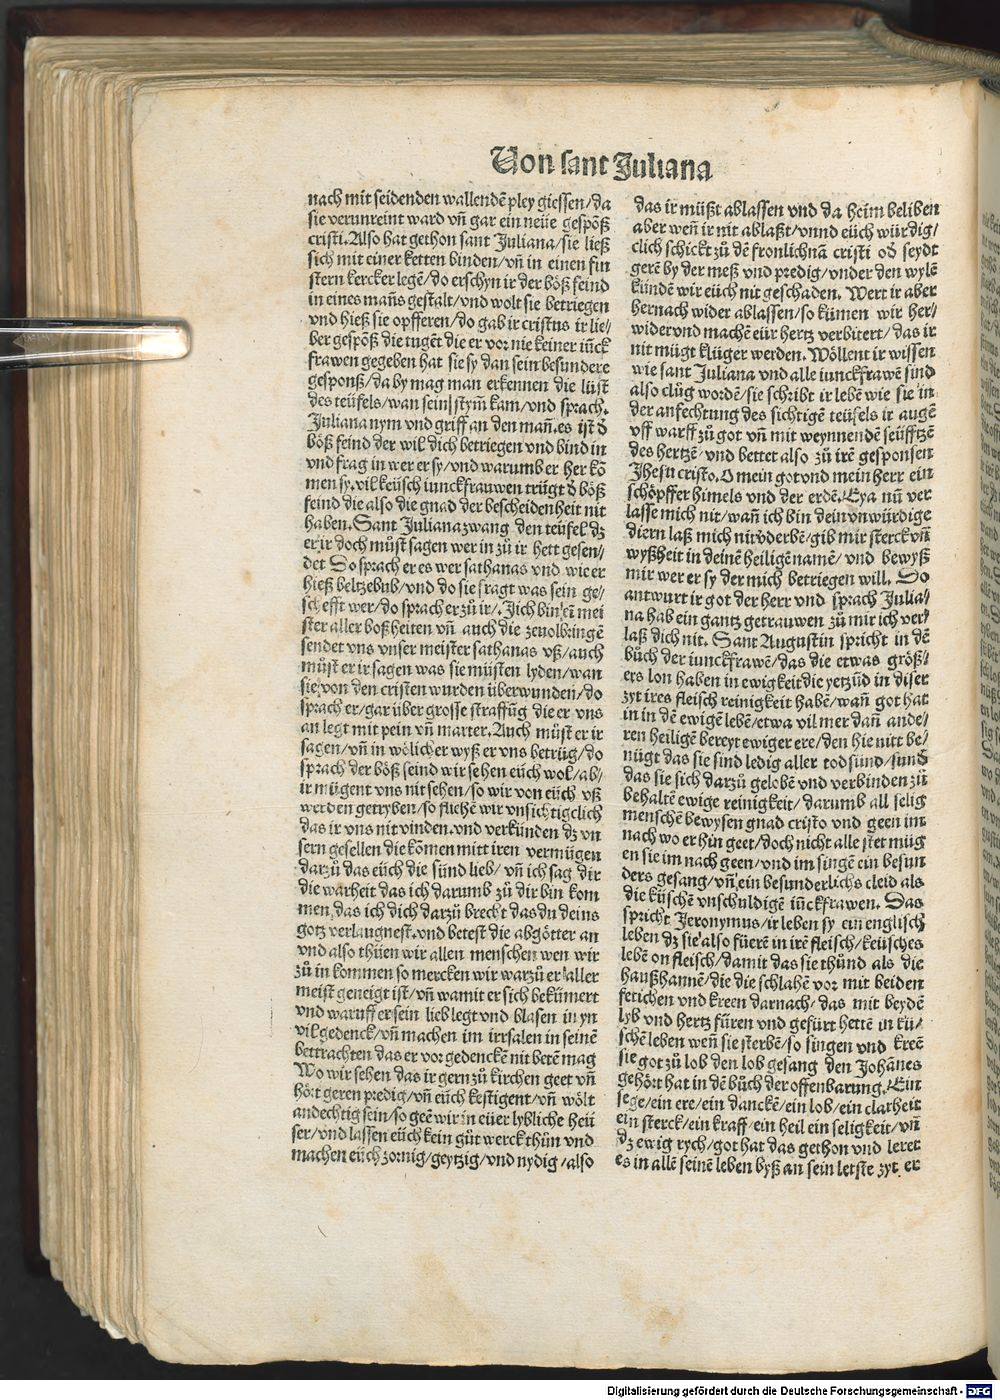 Von sant Juliana
nach mit seidenden wallendē pley giessen/da
sie verunreint ward vñ gar ein neüe gespōß
cristi. Also hat gethon sant Juliana/sie ließ
sich mit einer ketten binden/vñ in einen fin
stern kercker legē/do erschyn ir der böß feind
in eines mañs gestalt/vnd wolt sie betriegen
vnd hieß sie opfferen/do gab ir cristus ir lie/
ber gespōß die tugēt die er vor nie keiner iūck
frawen gegeben hat sie sy dan sein besundere
gesponß/da by mag man erkennen die lüst
des teüfels/wan sein stym̄ kam/vnd sprach.
Juliana nym vnd griff an den man. es ist d̄
böß feind der wil dich betriegen vnd bind in
vnd frag in wer er sy/vnd warumb er her kō
men sy. vil keüsch iunckfrauwen trügt d̄ böß
feind die also die gnad der bescheidenheit nit
haben. Sant Juliana zwang den teüfel dz
er ir doch můst sagen wer in zů ir hett gesen/
det So sprach er es wer sathanas vnd wie er
hieß beltzebub/vnd do sie fragt was sein ge/
schefft wer/do sprach er zů ir/. Jich bin ein mei
ster aller boßheiten vñ auch die zeuolbringē
sendet vns vnser meister sathanas vß/auch
můst er ir sagen was sie müsten lyden/wan
sie von den cristen wurden überwunden/do
sprach er/gar über grosse straffūg die er vns
an legt mit pein vñ marter. Auch můst er ir
sagen/vñ in wölicher wyß er vns betrüg/do
sprach der böß feind wir sehen eüch wol/ab/
ir mügent vns nit sehen/so wir von eüch vß
werden getryben/so fliehē wir vnsichtigclich
das ir vns nit vinden. vnd verkünden dz vn
sern gesellen die kōmen mitt iren vermügen
darzů das eüch die sünd lieb/ vñ ich sag dir
die warheit das ich darumb zů dir bin kom
men das ich dich darzů brecht das du deins
gotz verlaugnest. vnd betest die abgötter an
vnd also thüen wir allen menschen wen wir
zů in kommen so mercken wir warzů er aller
meist geneigt ist/vñ wamit er sich bekümert
vnd waruff er sein lieb legt vnd blasen in yn
vil gedenck/vñ machen im irrsalen in seinē
bettrachten das er vor gedenckē nit betē mag
Wo wir sehen das ir gern zů kirchen geet vñ
hört geren predig/vñ eüch kestigent/vñ wölt
andechtig sein/so geē wir in eüer lybliche heü
ser/vnd lassen eüch kein gůt werck thůn vnd
machen eüch zornig/geytzig/vnd nydig/also
das ir müßt ablassen vnd da heim beliben
aber weñ ir nit ablaßt/vnnd eüch würdig/
clich schickt zů dē fronlichnā cristi od̄ seydt
gerē by der meß vnd predig/vnder den wylē
kündē wir eüch nit geschaden. Wert ir aber
hernach wider ablassen/so kümen wir her/
widervnd machē eür hertz verbitert/das ir
nit mügt klüger werden. Wöllent ir wissen
wie sant Juliana vnd alle iunckfrawē sind
also clůg wordē/sie schribt ir lebē wie sie in
der anfechtung des sichtigē teüfels ir augē
vff warff zů got vñ mit weynnendē seüfftzē
des hertzē/vnd bettet also zů irē gesponsen
Jhesu cristo. O mein got vnd mein herr ein
schöpffer himels vnd der erdē. Eya nū ver
lasse mich nit/wañ ich bin dein vnwürdige
diern laß mich nit v̄derbē/gib mir sterck vñ
wyßheit in deinē heiligē namē/ vnd bewyß
mir wer er sy der mich betriegen will. Do
antwurt ir got der herr vnd sprach Julia/
na hab ein gantz getrauwen zů mir ich ver/
laß dich nit. Sant Augustin spricht in dē
bůch der iunckfrawē/das die etwas größ/
ers lon haben in ewigkeit die yetzūd in diser
zyt ires fleisch reinigkeit habē/wañ got hat
in in dē ewigē lebē/etwa vil mer dañ ande/
ren heiligē bereyt ewiger ere/den hie nitt be/
nügt das sie sind ledig aller tod sünd/sund
das sie sich darzů gelobē vnd verbinden zů
behaltē ewige reinigkeit/ darumb all selig
menschē bewysen gnad cristo vnd geen im
nach wo er hin geet/doch nicht alle stet müg
en sie im nach geen/vnd im singē ein besun
ders gesang/vñ ein besunderlichs cleid als
die küschē vnschuldigē iūckfrawen. Das
spricht Jeronymus/ir leben sy ein englisch
leben dz sie also fürē in irē fleisch/keüsches
lebē on fleisch/damit das sie thůnd als die
haußhannē/die die schlahē vor mit beiden
fetichen vnd kreen darnach/ das mit beydē
lyb vnd hertz fůren vnd gefürt hettē in kü/
schē leben weñ sie sterbē/so singen vnd kreē
sie got zů lob den lob gesang den Johānes
gehört hat in dē bůch der offenbarung. Ein
sege/ein ere/ein danckē/ein lob/ein clarheit
ein sterck/ein krafft ein heil ein seligkeit/vñ
dz ewig rych/got hat das gethon vnd leret
es in allē seinē leben byß an sein letste zyt. er
Digitalisierung gefördert durch die Deutsche Forschungsgemeinschaft - DFG